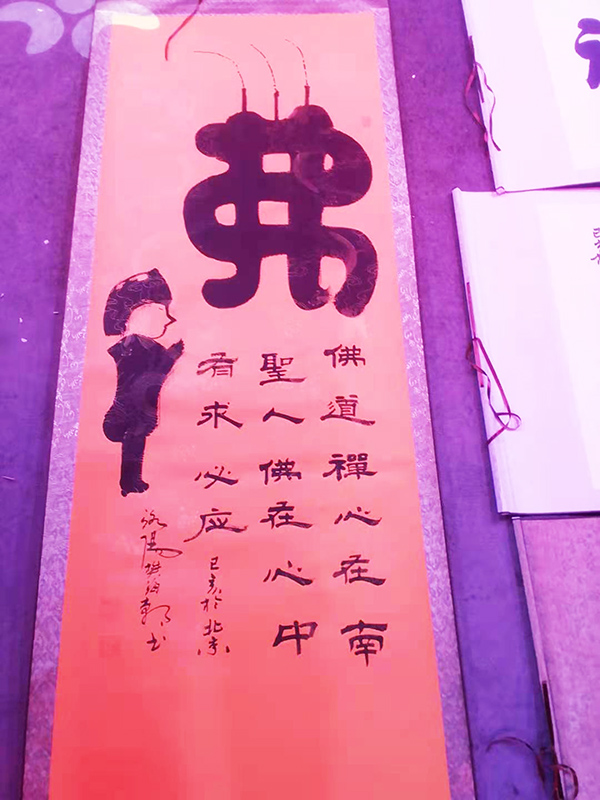 弗
佛道禪心在南
聖人佛在心中
有求必应
己亥於北京
洛陽
书